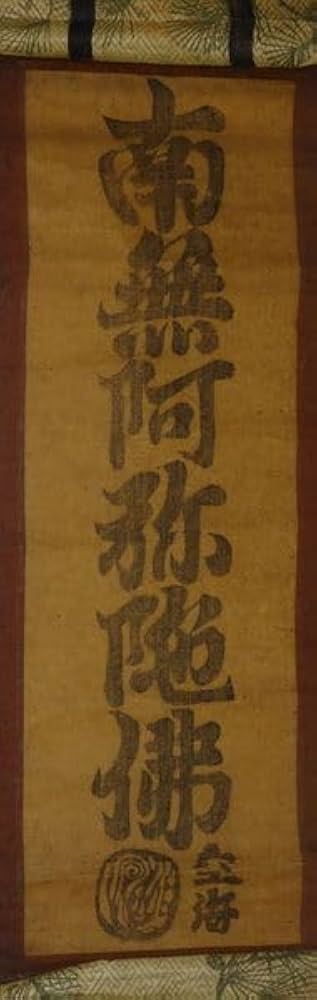 南無阿弥陁佛
空海